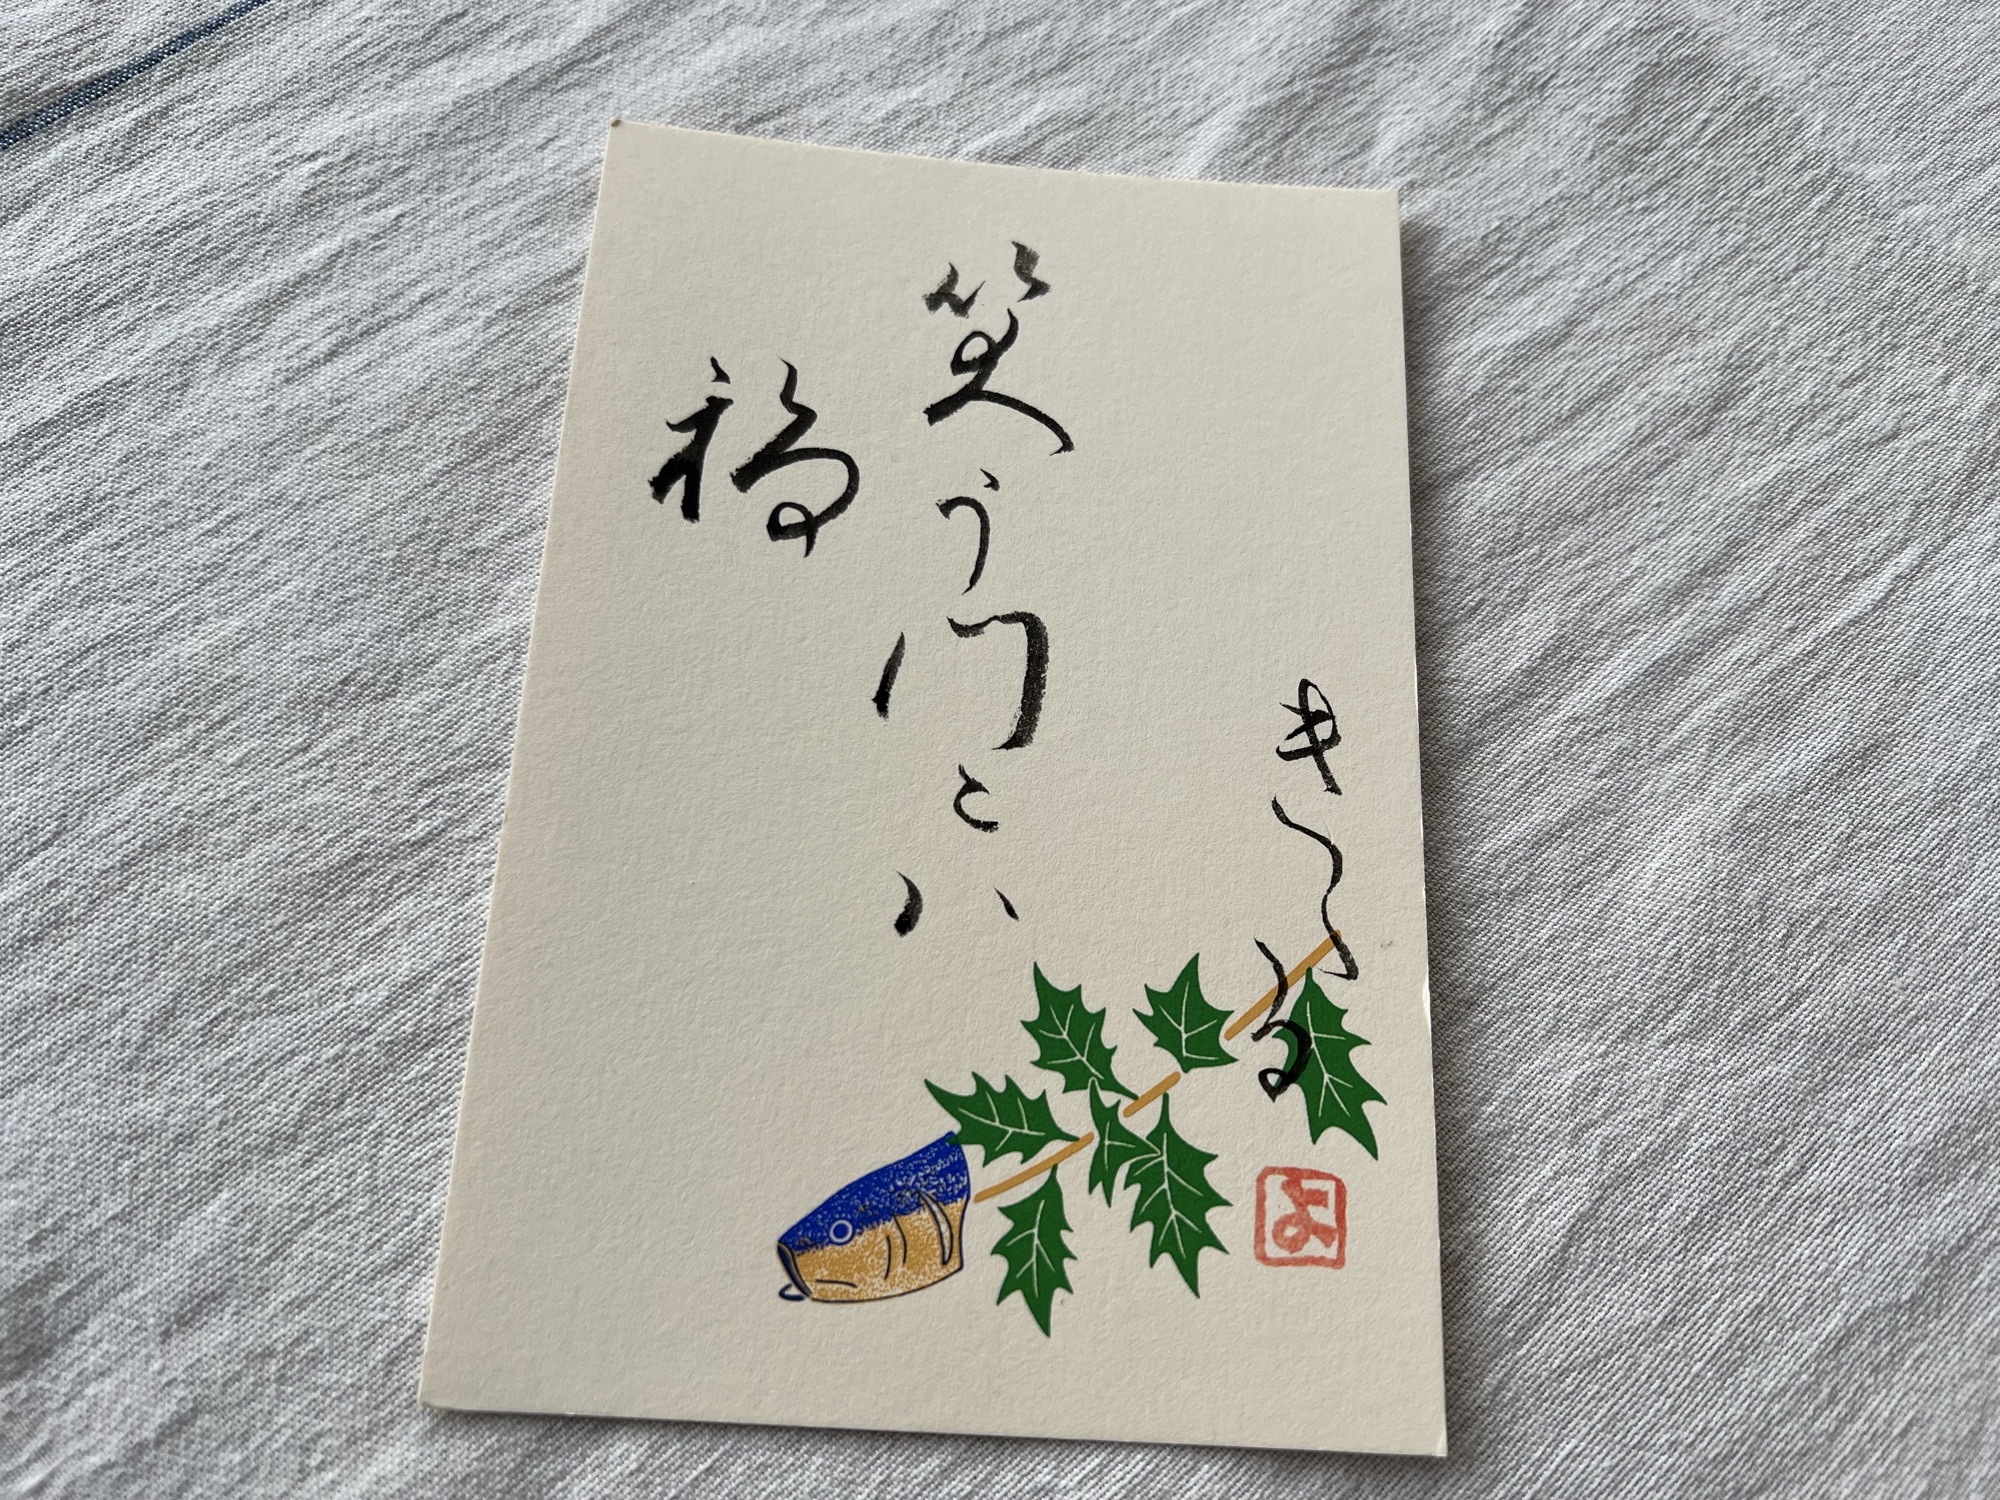 笑う門には
福
きたる
よ